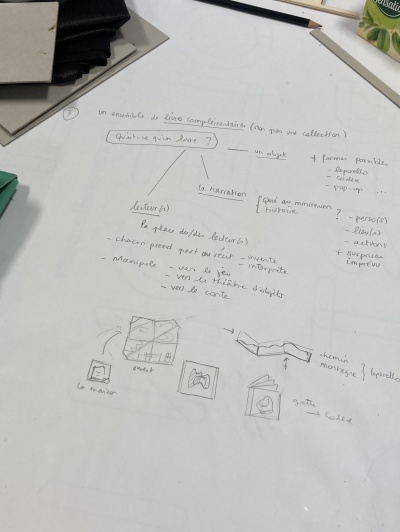 un ensemble de livres complémentaires (non pas une collection)
Qu'est-ce qu'un livre ?
un objet
+ formes possibles
- leporello
- codex
- pop-up ...
la narration
{ Quoi au minimum ?
histoire
- perso(s)
- lieu(x)
- actions
+ surprises
imprévu
lecteur(s)
la place du/des lecteur(s)
- chacun prend part au récit
- invente
- interprète
- Manipule
- vers le jeu
- vers le théâtre d'objets
- vers le conte
la maison
chemin
montagne
} leporello
grotte
→ codex